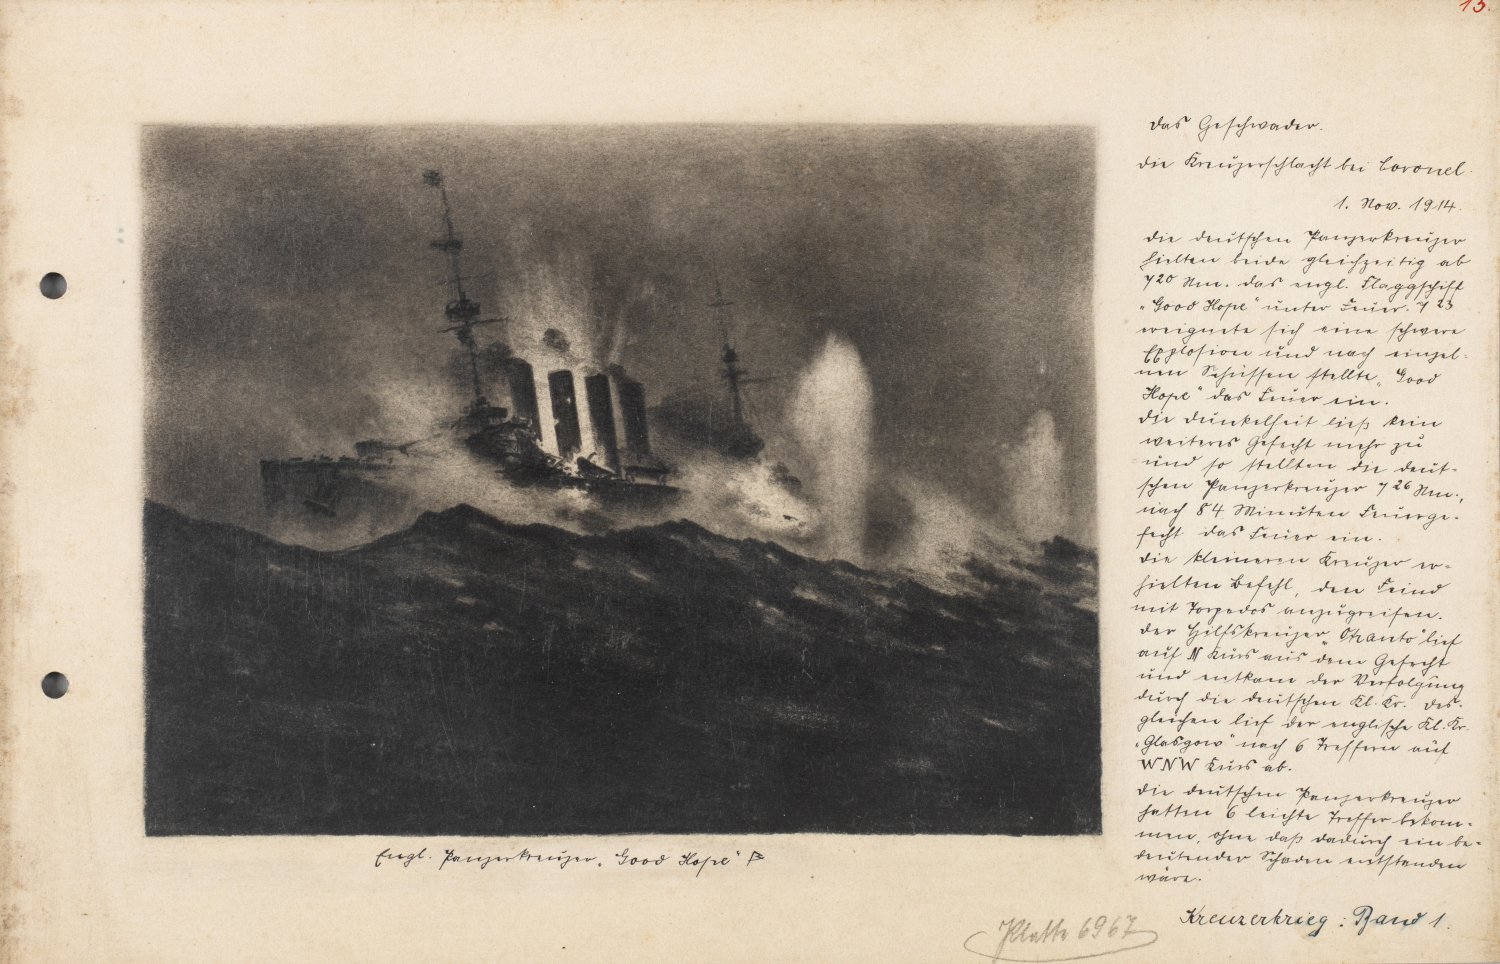 15.
Das Geschwader.
Die Kreuzerschlacht bei Coronel.
1. Nov. 1914.
Die deutschen Panzerkreuzer
hielten beide gleichzeitig ab
7 20 Nm. das engl. Flaggschiff
„Good Hope" unter Feuer. 7 23
ereignete sich eine schwere
Explosion und nach einzel-
nen Schüssen stellte „Good
Hope" das Feuer ein.
Die Dunkelheit ließ kein
weiteres Gefecht mehr zu
und so stellten die deut-
schen Panzerkreuzer 7 26 Nm.,
nach 84 Minuten Feuerge-
fecht das Feuer ein.
Die kleineren Kreuzer er-
hielten Befehl, den Feind
mit Torpedos anzugreifen.
Der Hilfskreuzer „Otranto" lief
auf N Kurs aus dem Gefecht
und entkam der Verfolgung
durch die deutschen Kl. Kr. Des-
gleichen lief der englische Kl. Kr.
„Glasgow" nach 6 Treffern auf
WNW Kurs ab.
Die deutschen Panzerkreuzer
hatten 6 leichte Treffer bekom-
men, ohne daß dadurch ein be-
deutender Schaden entstanden
wäre.
Kreuzerkrieg: Band 1.
Engl. Panzerkreuzer „Good Hope"
Platte 6967